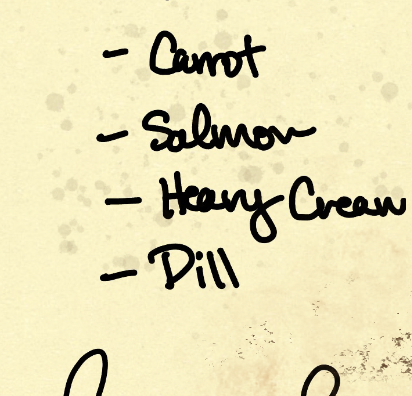 - Carrot
- Salmon
- Heavy Cream
- Dill